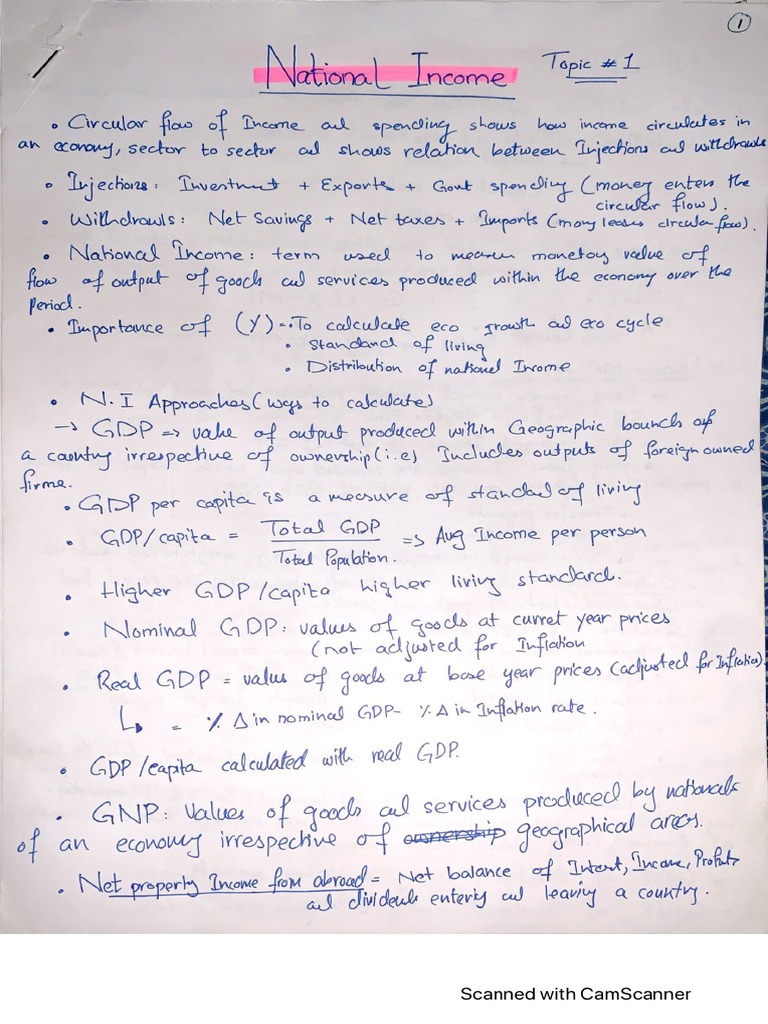 1
National Income Topic # 1
• Circular flow of Income and spending shows how income circulates in
an economy, sector to sector and shows relation between Injections and withdrawls
• Injections: Investment + Exports + Govt spending (money enters the
circular flow).
• Withdrawls: Net Savings + Net taxes + Imports (money leaves circular flow).
• National Income: term used to measure monetary value of
flow of output of goods and services produced within the economy over the
period.
• Importance of (Y) -• To calculate eco growth and eco cycle
• Standard of living
• Distribution of national Income
• N.I Approaches (ways to calculate)
→ GDP ⇒ value of output produced within Geographic bounds of
a country irrespective of ownership (i.e) Includes outputs of foreign owned
firms.
• GDP per capita is a measure of standard of living
• GDP/capita = Total GDP ⇒ Avg Income per person
Total Population.
• Higher GDP/capita higher living standard.
• Nominal GDP: values of goods at curret year prices
(not adjusted for Inflation
• Real GDP = value of goods at base year prices (adjusted for Inflation)
↳ = % Δ in nominal GDP - % Δ in Inflation rate.
• GDP/capita calculated with real GDP.
• GNP: Values of goods and services produced by nationals
of an economy irrespective of ownership geographical areas.
• Net property Income from abroad = Net balance of Interst, Income, Profits
and dividends entering and leaving a country.
Scanned with CamScanner